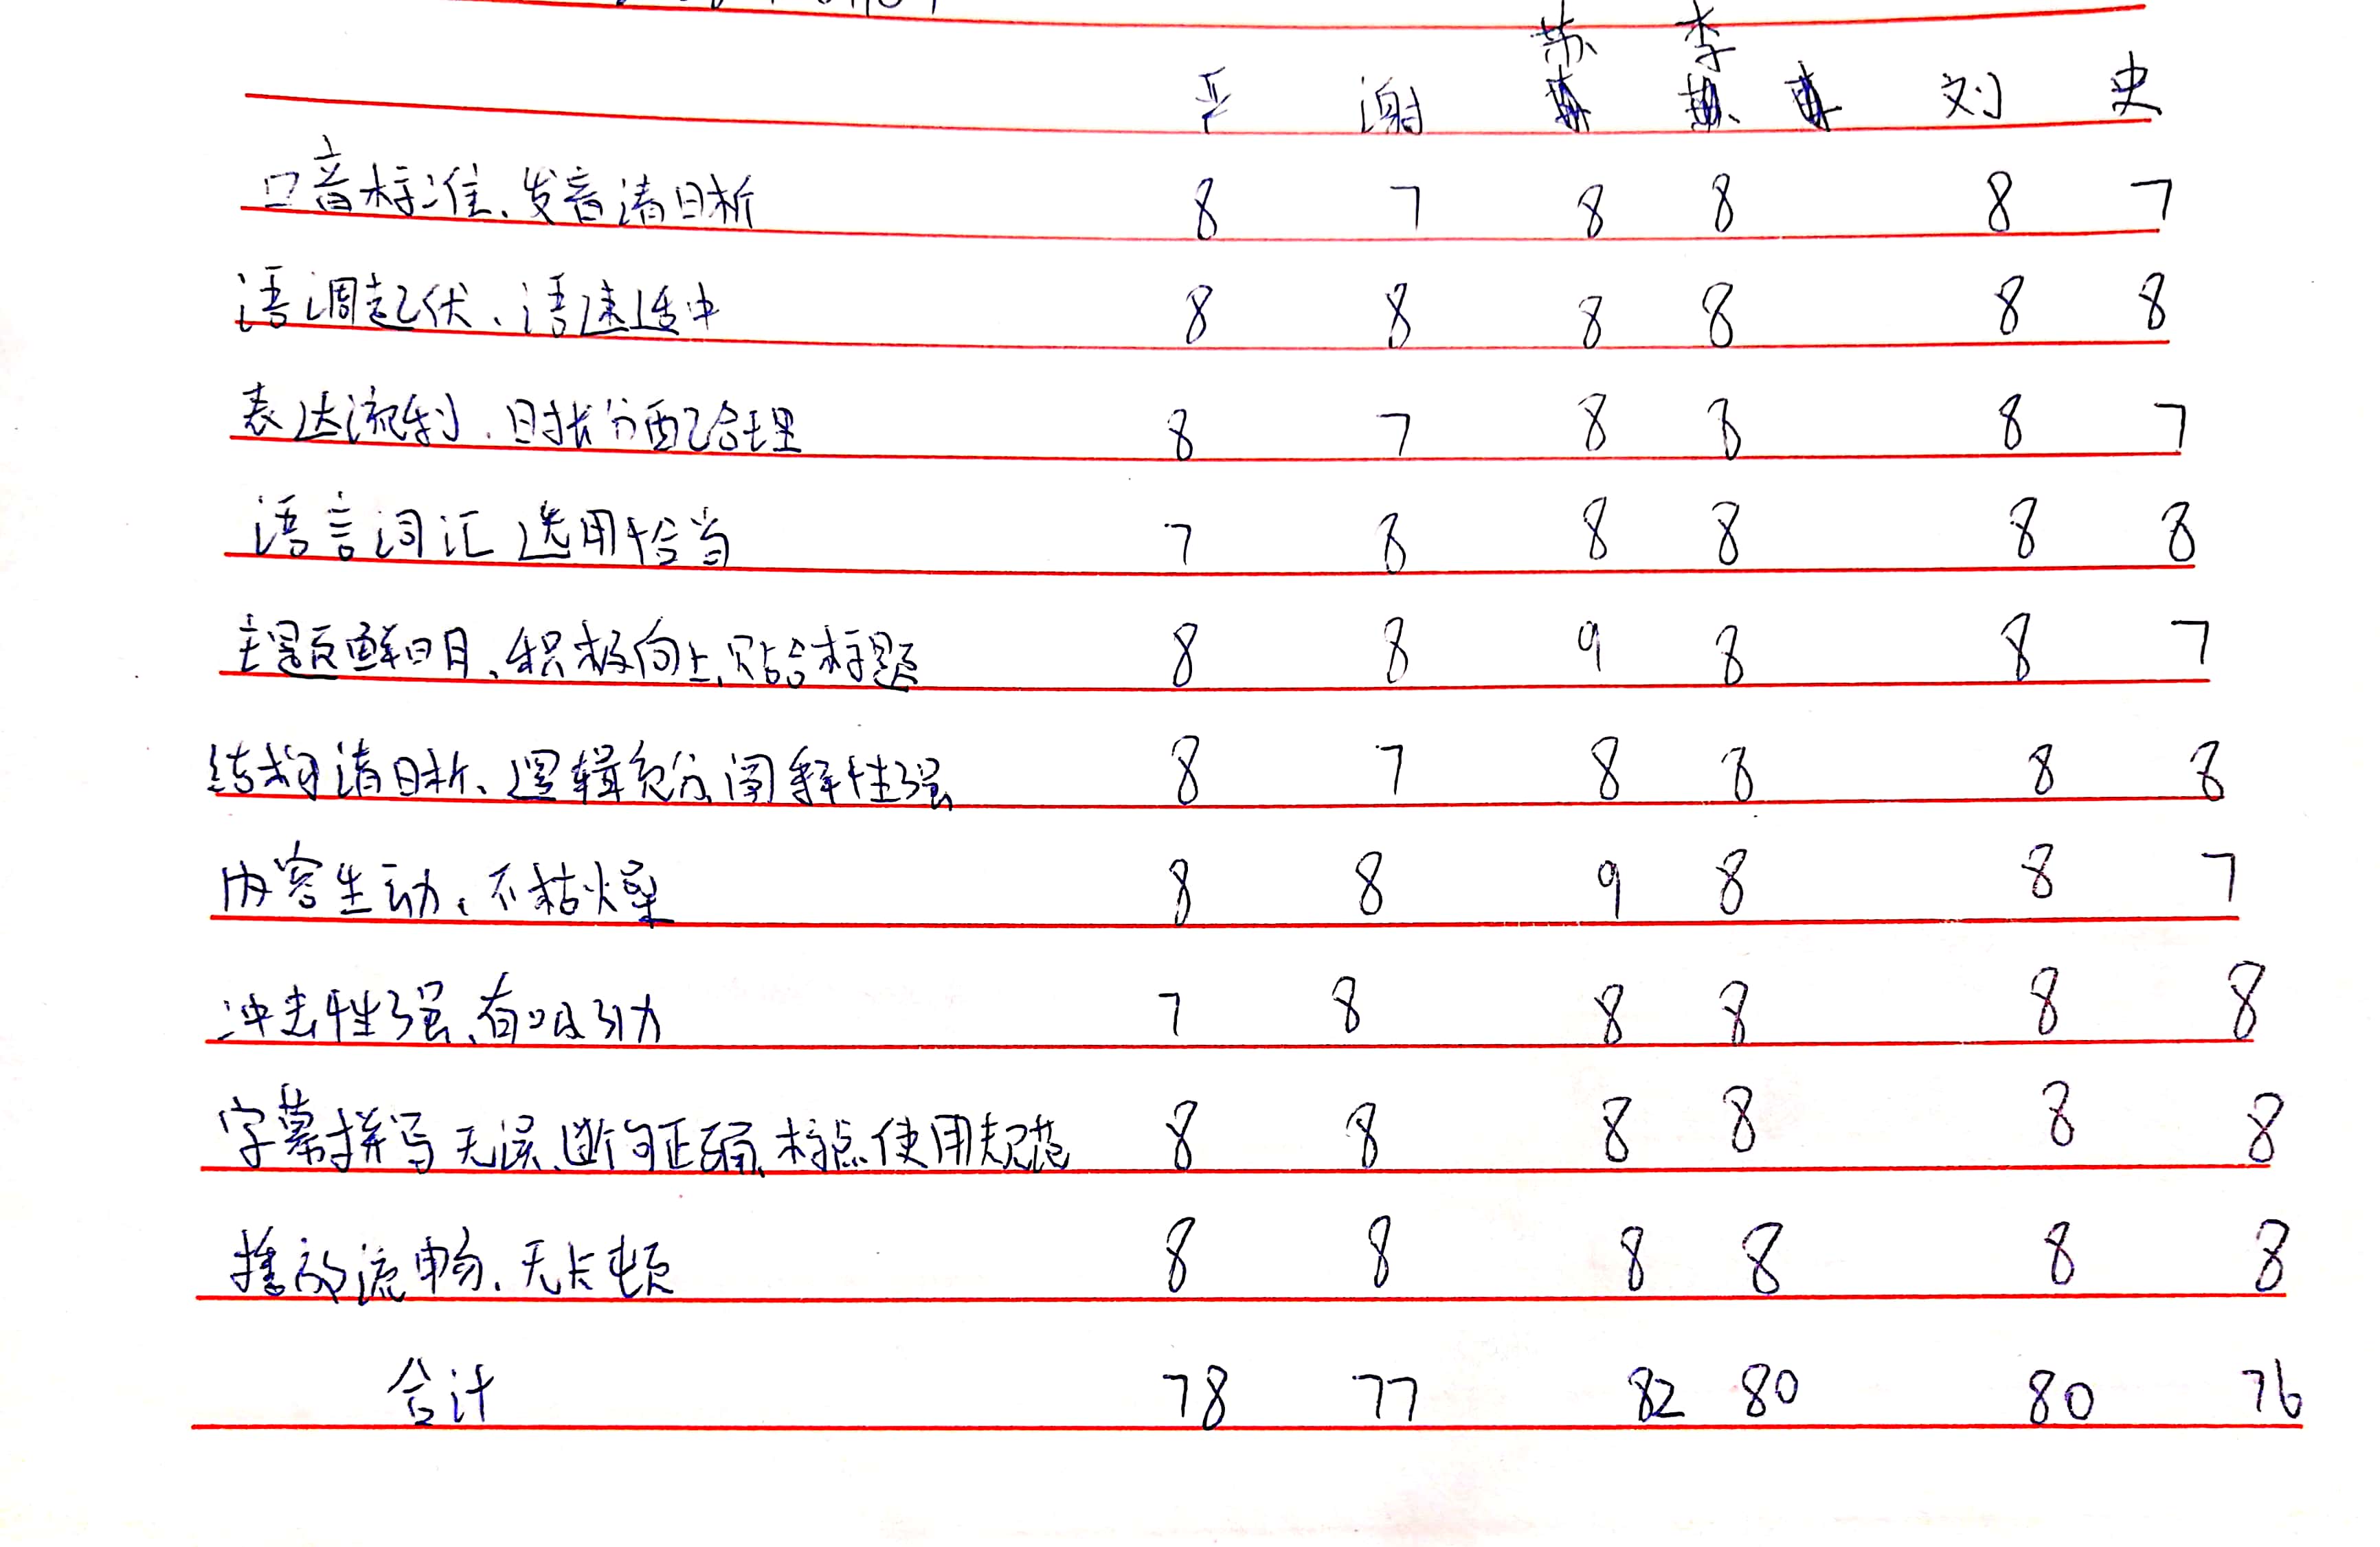 苏 李
平 谢 刘 史
口音标准、发音清晰 8 7 8 8 8 7
语调起伏、语速适中 8 8 8 8 8 8
表达流利、时长分配合理 8 7 8 8 8 7
语言词汇选用恰当 7 8 8 8 8 8
主题鲜明、积极向上、贴合标题 8 8 9 8 8 7
结构清晰、逻辑充分、阐释性强 8 7 8 8 8 8
内容生动、不枯燥 8 8 9 8 8 7
冲击性强、有吸引力 7 8 8 8 8 8
字幕拼写无误、断句正确、标点使用规范 8 8 8 8 8 8
播放流畅、无卡顿 8 8 8 8 8 8
合计 78 77 82 80 80 76